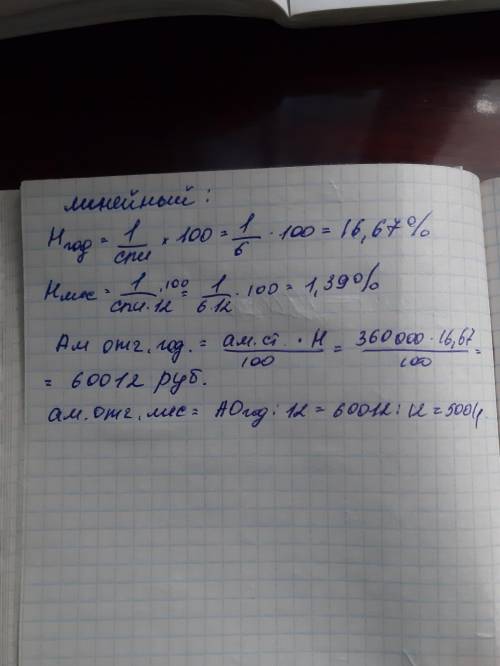 линейный:
Нгод = 1/спи × 100 = 1/6 · 100 = 16,67%
Нмес = 1/спи·12 · 100 = 1/6·12 · 100 = 1,39%
Ам отч. год. = ам. ст. · Н/100 = 360000 · 16,67/100 =
= 60012 руб.
ам. отч. мес = АОгод : 12 = 60012 : 12 = 5001